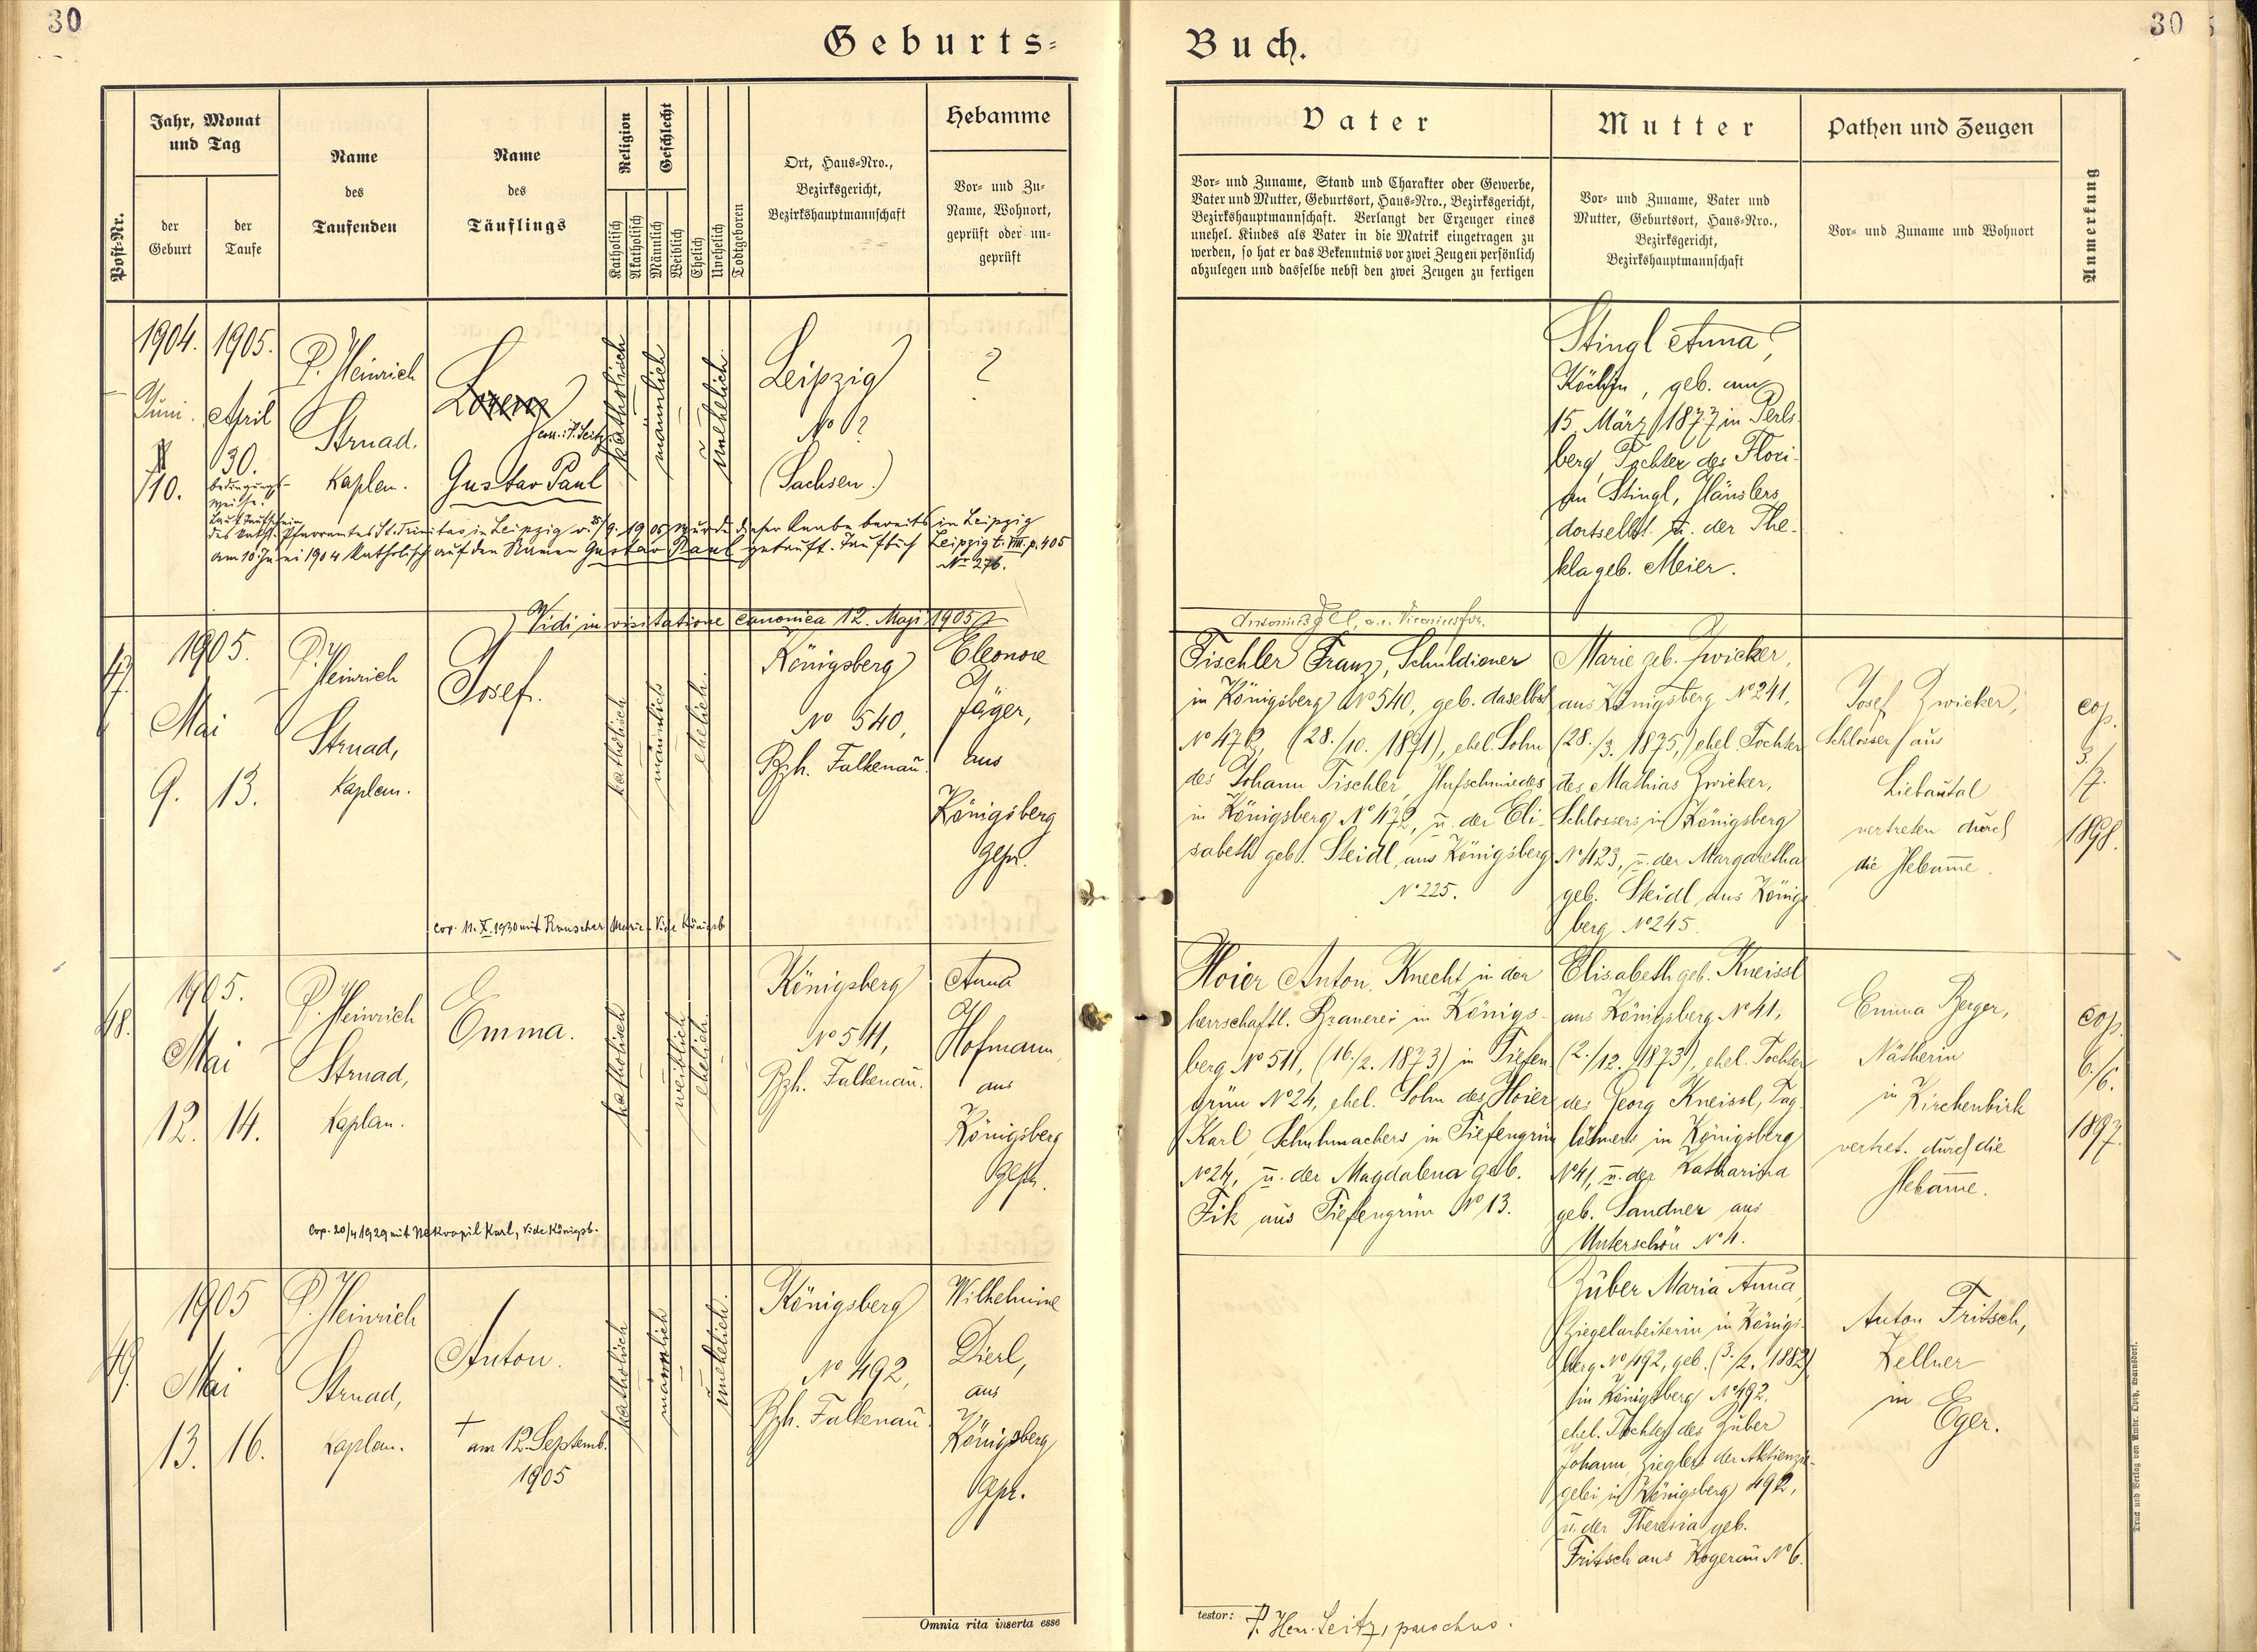 30
Geburts=
Post=Nr.
Jahr, Monat
und Tag
der
Geburt
der
Taufe
Name
des
Taufenden
Name
des
Täuflings
Religion
Katholisch
Akatholisch
Geschlecht
Männlich
Weiblich
Ehelich
Unehelich
Todtgeboren
Ort, Haus=Nro.,
Bezirksgericht,
Bezirkshauptmannschaft
Hebamme
Vor= und Zu=
Name, Wohnort,
geprüft oder un=
geprüft
1904.
Juni
10.
1905.
April
30.
bedingungs-
weise.
P. Heinrich
Strnad.
Kaplan.
Lorenz
corr. P. Seitz
Gustav Paul
katholisch
männlich
unehelich.
Leipzig
No ?
(Sachsen.)
?
Laut Taufschein
des kath. Pfarramtes St. Trinitas in Leipzig v. 25/9. 1905 wurde dieser Knabe bereits in Leipzig
am 10 Juni 1904 katholisch auf den Namen Gustav Paul getauft. Taufbuch Leipzig t. VIII. p. 405
Nr 276.
Vidi in visitatione canonica 12. Maji 1905
47.
1905.
Mai
9.
13.
P. Heinrich
Strnad,
Kaplan.
Josef.
katholisch
männlich
ehelich.
Königsberg
No 540,
Bzh. Falkenau.
Eleonore
Jäger,
aus
Königsberg
Gepr.
cop. 11. X. 1930 mit Rauscher Marie - Vide Königsb.
48.
1905.
Mai
12.
14.
P. Heinrich
Strnad,
Kaplan.
Emma.
katholisch
weiblich
ehelich.
Königsberg
No 511,
Bzh. Falkenau.
Anna
Hofmann,
aus
Königsberg
Gepr.
Cop. 20/4 1929 mit Nekvapil Karl, Vide Königsb.
49.
1905
Mai
13.
16.
P. Heinrich
Strnad,
Kaplan.
Anton.
† am 12. Septemb.
1905
katholisch
männlich
unehelich.
Königsberg
No 492,
Bzh. Falkenau.
Wilhelmine
Dierl,
aus
Königsberg
Gepr.
Omnia rita inserta esse
30
Buch.
Vater
Vor= und Zuname, Stand und Charakter oder Gewerbe,
Vater und Mutter, Geburtsort, Haus=Nro., Bezirksgericht,
Bezirkshauptmannschaft. Verlangt der Erzeuger eines
unehel. Kindes als Vater in die Matrik eingetragen zu
werden, so hat er das Bekenntnis vor zwei Zeugen persönlich
abzulegen und dasselbe nebst den zwei Zeugen zu fertigen
Mutter
Vor= und Zuname, Vater und
Mutter, Geburtsort, Haus=Nro.,
Bezirksgericht,
Bezirkshauptmannschaft
Pathen und Zeugen
Vor= und Zuname und Wohnort
Anmerkung
Stingl Anna,
Köchin, geb. am
15. März 1877 in Perls-
berg, Tochter des Flori-
an Stingl, Häuslers
dortselbst u. der The-
kla geb. Meier.
Tischler Franz, Schuldiener
in Königsberg No 540, geb. daselbst
No 472, (28./10. 1871), ehel. Sohn
des Johann Tischler, Hufschmiedes
in Königsberg No 472, u. der Eli-
sabeth geb. Steidl aus Königsberg
No 225.
Marie geb. Zwicker,
aus Königsberg No 241,
(28./3. 1875,) ehel. Tochter
des Mathias Zwicker,
Schlossers in Königsberg
No 423, u. der Margaretha
geb. Steidl aus Königs
berg No 245.
Josef Zwicker,
Schlosser aus
Liebautal
vertreten durch
die Hebamme.
cop.
3./
7.
1898.
Hoier Anton, Knecht in der
herrschaftl. Brauerei in Königs-
berg No 511, (16./2. 1873) in Tiefen
grün No 24, ehel. Sohn des Hoier
Karl, Schuhmachers in Tiefengrün
No 24, u. der Magdalena geb.
Fik aus Tiefengrün No 13.
Elisabeth geb. Kneissl
aus Königsberg No 41,
(2./12. 1873), ehel. Tochter
des Georg Kneissl, Tag
löhners in Königsberg
No 41, u. der Katharina
geb. Sandner aus
Unterschön No 4.
Emma Berger,
Nätherin
in Kirchenbirk
vertret. durch die
Hebamme.
cop.
6./
6.
1897.
Züber Maria Anna,
Ziegelarbeiterin in Königs-
berg No 492, geb. (3./2. 1882)
in Königsberg No 492.
ehel. Tochter des Züber
Johann, Zieglers der Aktienzie-
gelei in Königsberg 492,
u. der Theresia geb.
Fritsch aus Kogerau No 6.
Anton Fritsch,
Kellner
in
Eger.
testor: P. Hen. Seitz, parochus.
Druck und Verlag von Ambr. Opitz, Warnsdorf.